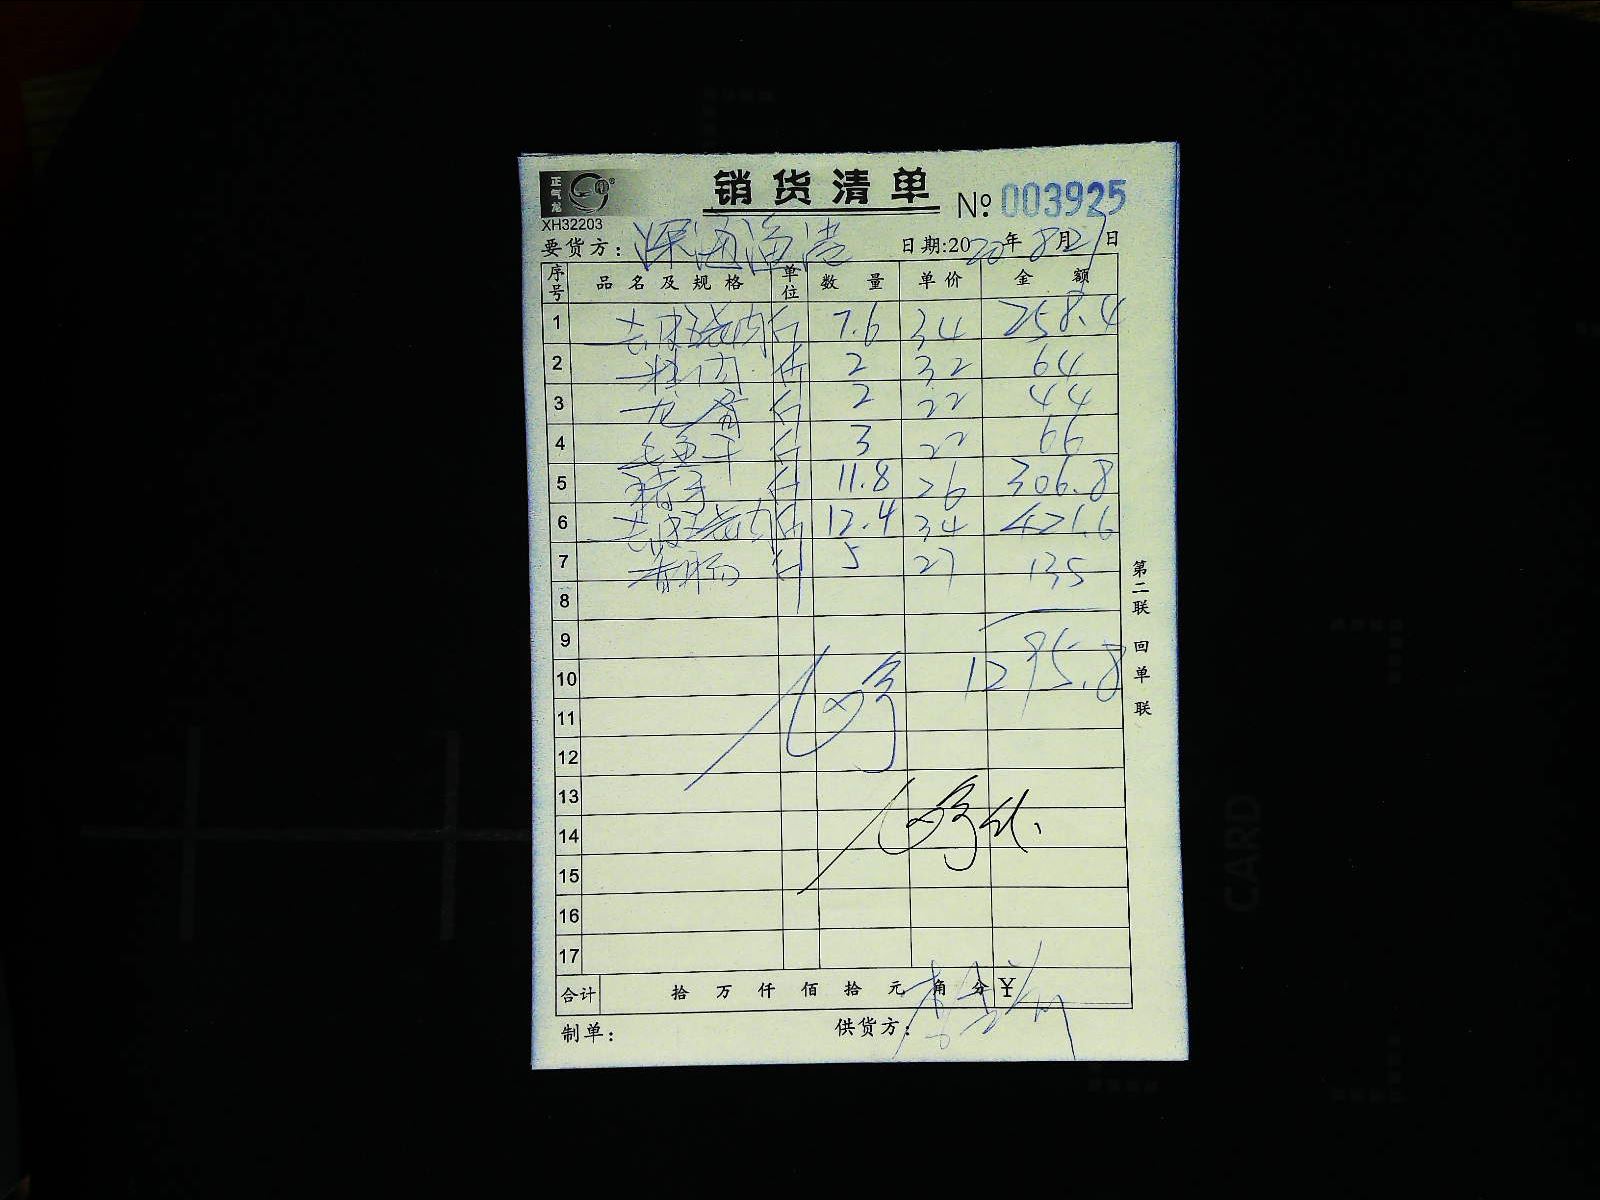 正气龙
XH32203
销货清单
№ 003925
要货方：深海渔港 日期:2020年8月21日
序号 品名及规格 单位 数量 单价 金额
1 斤 7.6 34 258.4
2 斤 2 32 64
3 斤 2 22 44
4 毛鱼干 斤 3 22 66
5 猪手 斤 11.8 26 306.8
6 斤 12.4 34 421.6
7 香肠 斤 5 27 135
8
9
10 1295.8
11
12
13
14
15
16
17
合计 拾 万 仟 佰 拾 元 角 分 ¥
制单： 供货方：
第二联 回单联
CARD